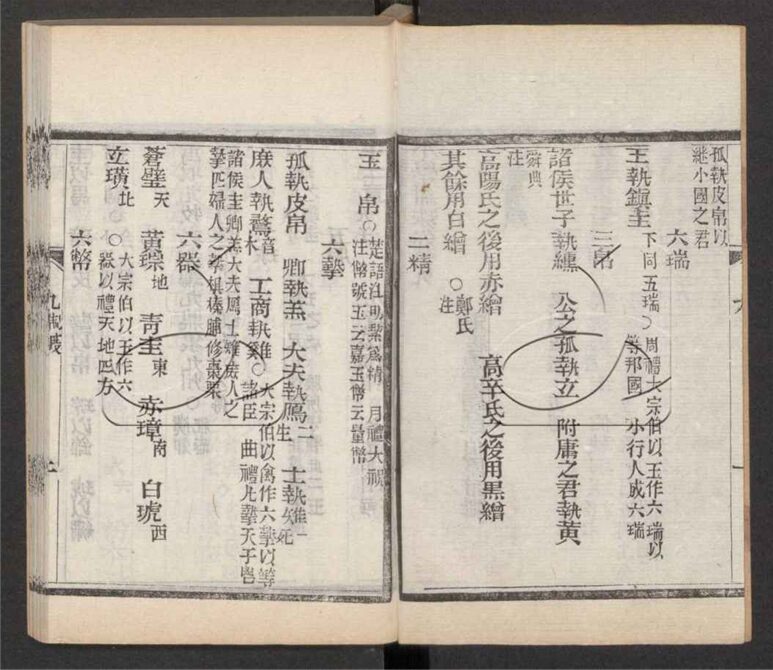 孤執皮帛以
繼小國之君
六瑞
王執鎮圭 下同五瑞○周禮大宗伯以玉作六瑞以
等邦國 小行人成六瑞
三帛
諸侯世子執纁 公之孤執立 附庸之君執黃
舜典
注
高陽氏之後用赤繒 高辛氏之後用黑繒
其餘用白繒 ○鄭氏
注
二精
玉 帛 ○楚語注明潔為精 月禮大祝
注幣號玉云嘉玉幣云量幣
六摯
孤執皮帛 卿執羔 大夫執鴈二生 士執雉一死
庶人執鶩音木 工商執雞 ○大宗伯以禽作六摯以等
諸臣 曲禮凡摯天子鬯
諸侯圭卿羔大夫鴈士雉庶人之
摯匹婦人之摯椇榛脯修棗栗
六器
蒼璧天 黃琮地 青圭東 赤璋南 白琥西
立璜北 ○大宗伯以玉作六
器以禮天地四方
六幣